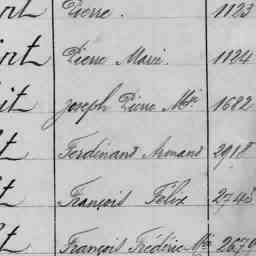 Pierre. 1123
Pierre Marie. 1124
Joseph Pierre Mie 1682
Ferdinand Armand 2918
François Félix 2743
François Frédéric Mie 2670